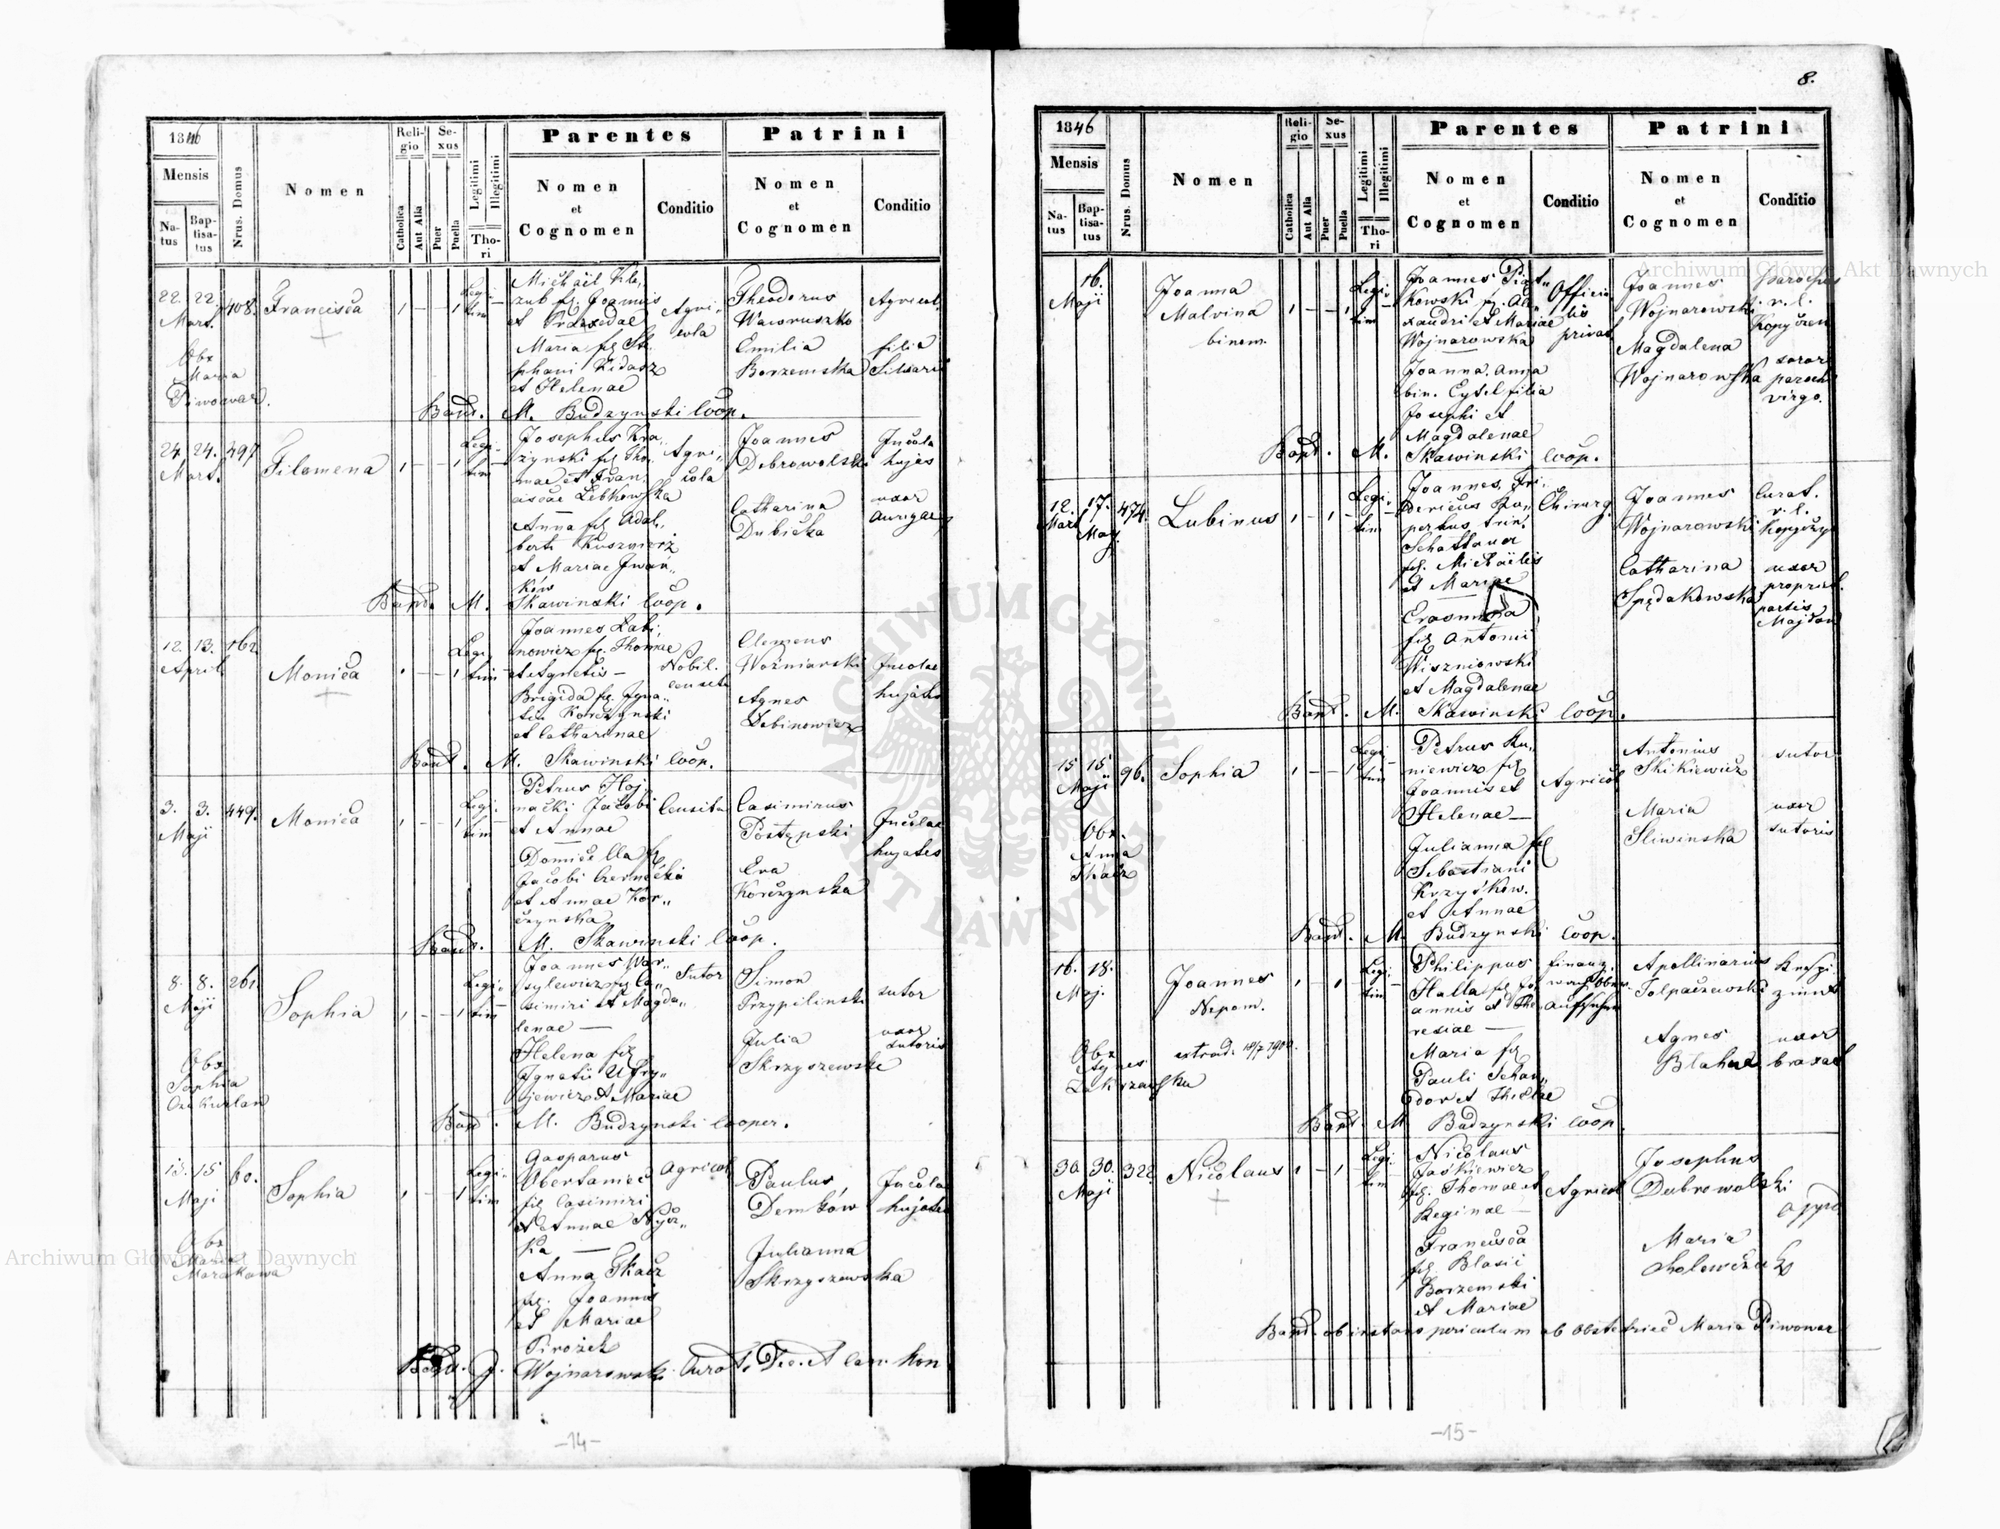 8.
1846
Mensis
Natus
Baptisatus
Nrus. Domus
Nomen
Religio
Catholica
Aut Alia
Sexus
Puer
Puella
Legitimi
Illegitimi
Thori
Parentes
Nomen
et
Cognomen
Conditio
Patrini
Nomen
et
Cognomen
Conditio
22. 22. 108. Francisca
Mart.
Obx
Maria
Piwowar.
Legi-
tim
Michael
fil. Joannis
et Praxedae
Maria fil. Ste-
phani
et Helenae
Agri-
cola
Theodorus
Wawruszko
Emilia
Borzemska
Agricol.
filia
Bapt. M. Budzynski Coop.
24. 24. 297
Mart.
Filomena
Legi-
tim
Josephus Kra-
zynski fil. Tho-
mae et Fran-
ciscae Lebkowska
Anna fil. Adal-
berti Kuszmierz
et Mariae Iwań-
ków
Agri-
cola
Joannes
Dobrowolski
Catharina
Dubicka
Incola
hujas
uxor
aurigae
Bapt. M. Skawinski Coop.
12. 13. 162.
April
Monica
Legi-
tim
Joannes Labi-
nowicz f. Thomae
et Agnetis –
Brigida fil. Igna-
tii Korczynski
et Catharinae
Nobil.
Clemens
Wozniarski
Agnes
Labinowicz
Incolae
hujates
Bapt. M. Skawinski Coop.
3. 3. 449.
Maji
Monica
Legi-
tim
Petrus Hoj-
nacki Jacobi
et Annae
Domicella fil
Jacobi Czernecki
et Annae Kor-
czynska
Casimirus
Postępski
Eva
Korczynska
Incolae
hujates
Bapt. M. Skawinski Coop.
8. 8. 261
Maji
Sophia
Obx
Sophia
Legi-
tim
Joannes War-
sylewicz fil Ca-
simiri et Magda-
lenae –
Helena fil
Ignatii Ufry-
jewicz et Mariae
Sutor
Simon
Przypilinski
Julia
Skrzyszewska
sutor
uxor
sutoris
Bapt. M. Budzynski Cooper.
15. 15 60.
Maji
Sophia
Obx
Maria
Morakowa
Legi-
tim
Gasparus
Obertaniec
fil Casimiri
et Annae Nycz-
ka –
Anna Tkacz
fil. Joannis
et Mariae
Pirożek
Agricol.
Paulus
Demków
Julianna
Skrzyszewska
Incola
hujates
Bapt. J. Wojnarowski
-14-
1846
Mensis
Natus
Baptisatus
Nrus. Domus
Nomen
Religio
Catholica
Aut Alia
Sexus
Puer
Puella
Legitimi
Illegitimi
Thori
Parentes
Nomen
et
Cognomen
Conditio
Patrini
Nomen
et
Cognomen
Conditio
16.
Maji
Joanna
Malvina
binom.
Legi-
tim
Joannes Piąt-
kowski fil. Ale-
xandri et Mariae
Wojnarowska
Joanna Anna
bin. Eytel filia
Josephi et
Magdalenae
Officia-
lis
privat
Joannes
Wojnarowski
Magdalena
Wojnarowska
Parochus
r. l.
soror
parochi
virgo.
Bapt. M. Skawinski Coop.
12. 17. 474.
Mart. Maj.
Lubinus
Legi-
tim
Joannes Fri-
dericus Ru-
pertus trin.
Schattauer
fil. Michaelis
et Mariae
Erasmina
fil Antonii
Wiszniowski
et Magdalenae
Chirurg.
Joannes
Wojnarowski
Catharina
Spędakowska
Curat.
r. l.
uxor
propriet.
partis
Majdan
Bapt. M. Skawinski Coop.
15 15 96.
Maji
Sophia
Obx.
Anna
Tkacz
Legi-
tim
Petrus Ku-
niewicz fil
Joannis et
Helenae –
Julianna fil
Sebastiani
Krzyśków.
et Annae
Agricol
Antonius
Skikiewicz
Maria
Sliwinska
sutor
uxor
sutoris
Bapt. M. Budzynski Coop.
16. 18.
Maj.
Joannes
Nepom.
Obx
Agnes
Zakrzewska
Legi-
tim
Philippus
Halla fil Jo-
annis et The-
resiae –
Maria fil
Pauli
finanz.
Apollinarius
Tolpaczewski
Agnes
Blahut
uxor
Bapt. M Budzynski Coop
30 30. 322
Maji
Nicolaus
Legi-
tim
Nicolaus
Jaśkiewicz
fil. Thomae et
Reginae –
Francisca
fil. Blasii
Borzemski
et Mariae
Agricol
Josephus
Dubrowolski
Maria
Bapt. ob instans periculum ab obstetrice Maria Piwowar
-15-
Archiwum Główne Akt Dawnych
Archiwum Główne Akt Dawnych
ARCHIWUM GŁÓWNE AKT DAWNYCH